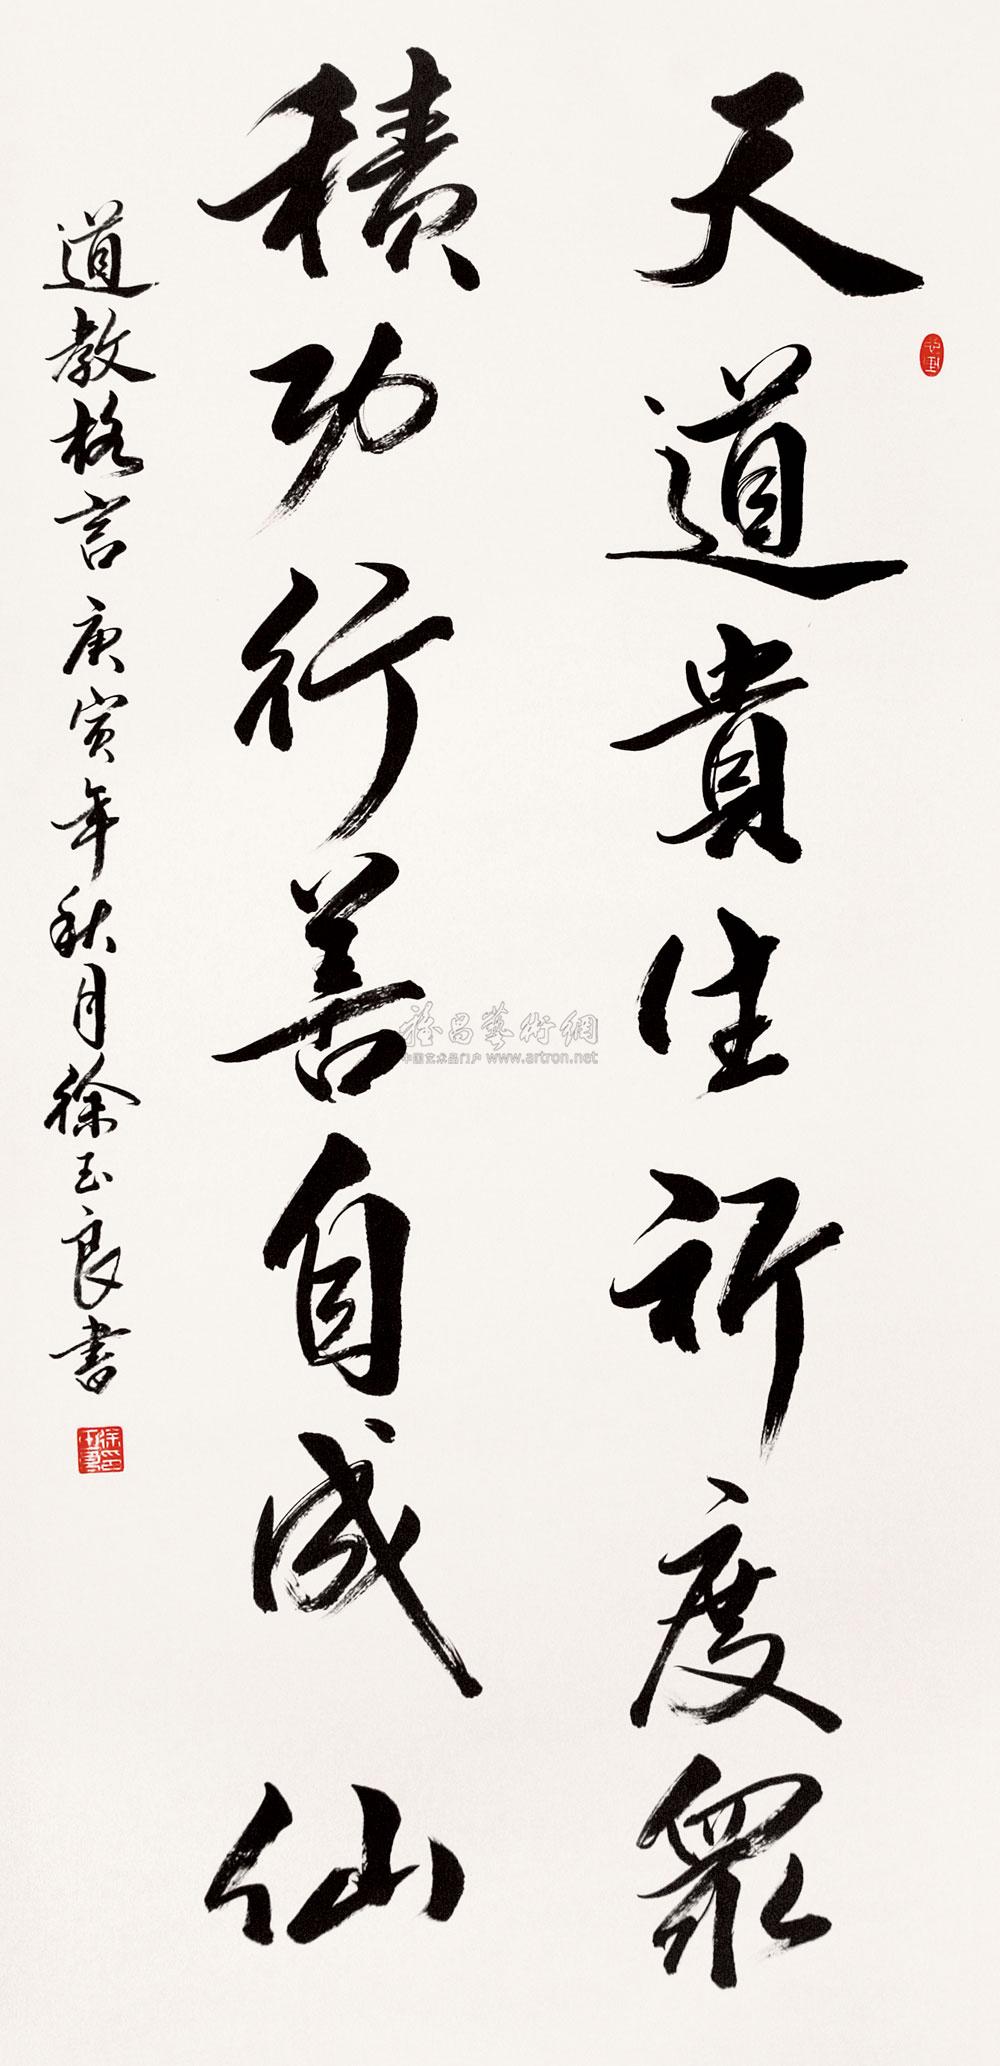 天道貴生祈度眾
積功行善自成仙
道教格言庚寅年秋月徐玉良書
雅昌藝術網
中国艺术品门户 www.artron.net